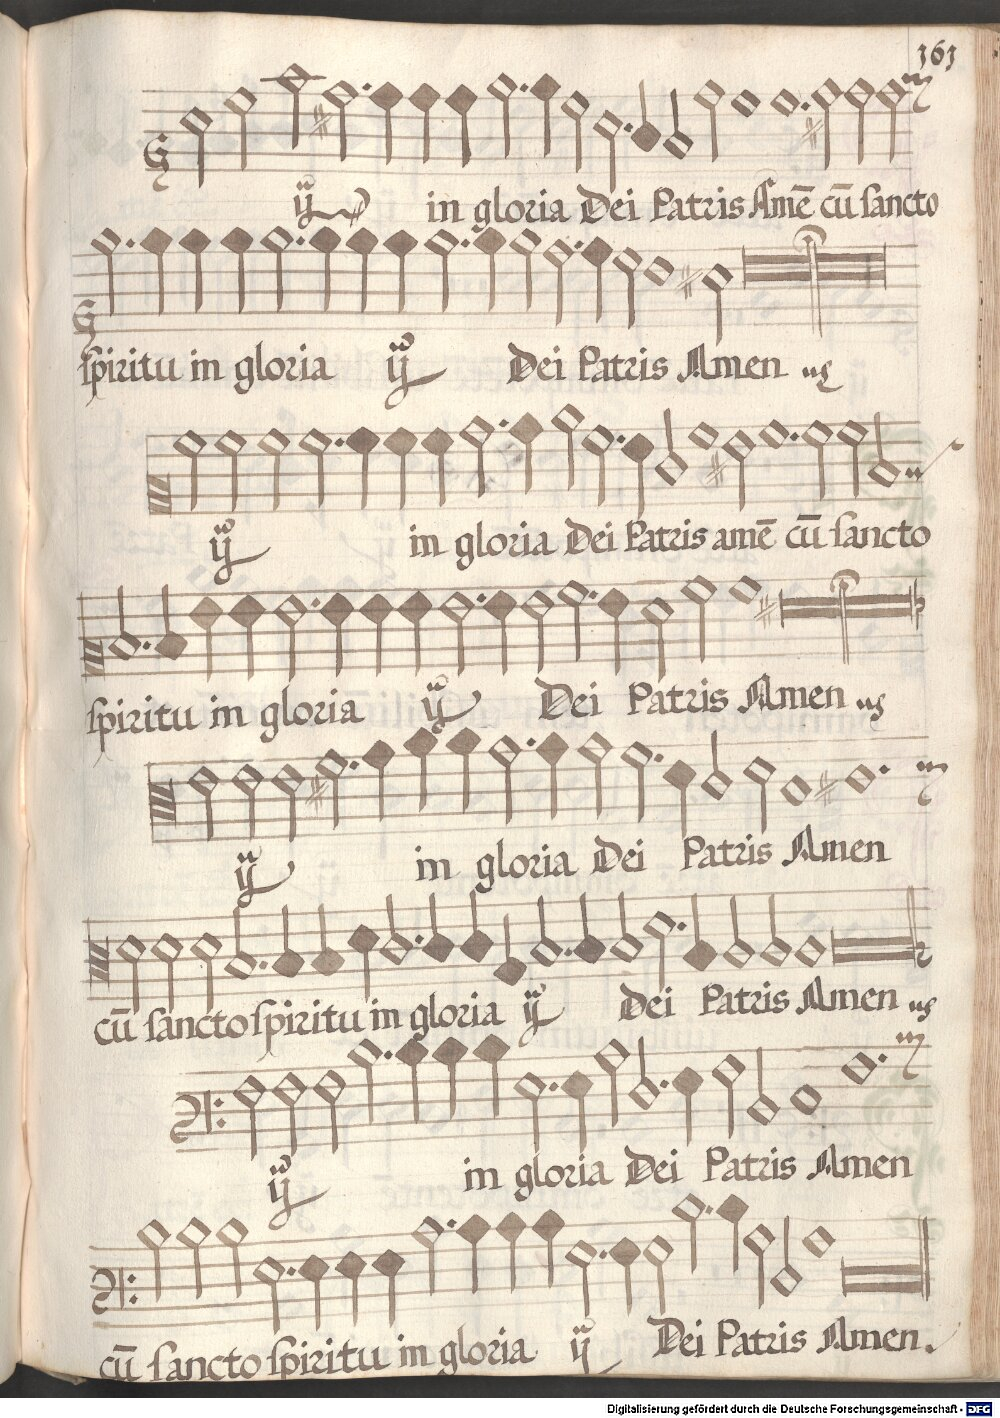 161
ij in gloria Dei Patris Amē cū sancto
spiritu in gloria ij Dei Patris Amen
ij in gloria Dei Patris amē cū sancto
spiritu in gloria ij Dei Patris Amen
ij in gloria Dei Patris Amen
cū sancto spiritu in gloria ij Dei Patris Amen
ij in gloria Dei Patris Amen
cū sancto spiritu in gloria ij Dei Patris Amen.
Digitalisierung gefördert durch die Deutsche Forschungsgemeinschaft - DFG